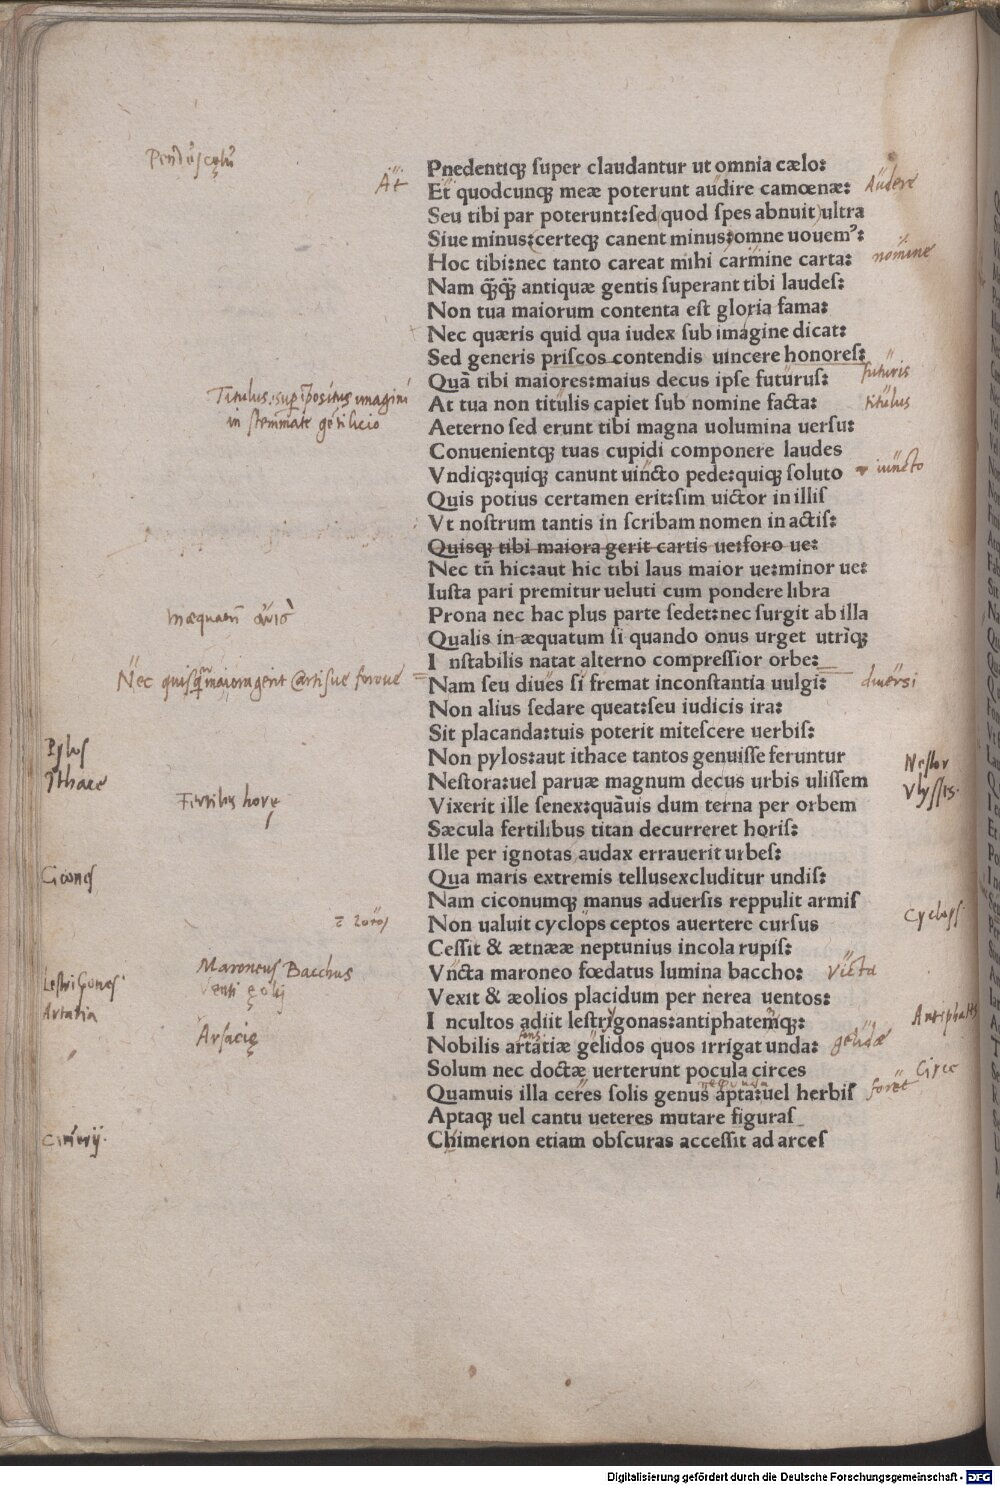 Pendẽs cęlũ
Pnedentiq; super claudantur ut omnia cælo:
At
Et quodcunq; meæ poterunt audire camœnæ:
Audere
Seu tibi par poterunt:sed quod spes abnuit ultra
Siue minus:certeq; canent minus:omne uouemꝰ:
Hoc tibi:nec tanto careat mihi carmine carta:
nomine
Nam q̃q̃ antiquæ gentis superant tibi laudes:
Non tua maiorum contenta est gloria fama:
Nec quæris quid qua iudex sub imagine dicat:
Sed generis priscos contendis uincere honores:
Quã tibi maiores:maius decus ipse futurus:
futuris
Titulus: suprapositus imagini
in stemmate gẽtilicio
At tua non titulis capiet sub nomine facta:
titulus
Aeterno sed erunt tibi magna uolumina uersu:
Conuenientq; tuas cupidi componere laudes
Vndiq;:quiq; canunt uincto pede:quiq; soluto
iuncto
Quis potius certamen erit:sim uictor in illis
Vt nostrum tantis in scribam nomen in actis:
Quisq; tibi maiora gerit cartis ue:foro ue:
Nec tñ hic:aut hic tibi laus maior ue:minor ue:
Iusta pari premitur ueluti cum pondere libra
Prona nec hac plus parte sedet:nec surgit ab illa
Qualis in æquatum si quando onus urget utriq;
I nstabilis natat alterno compressior orbe:
Nec quisq̃ maiora gerit cartisue foroue
Nam seu diues si fremat inconstantia uulgi:
diuersi
Non alius sedare queat:seu iudicis ira:
Sit placanda:tuis poterit mitescere uerbis:
Pylos
Non pylos:aut ithace tantos genuisse feruntur
Nestor
Ithace
Nestora:uel paruæ magnum decus urbis ulissem
Vlysses.
Fertilis horę
Vixerit ille senex:quãuis dum terna per orbem
Sæcula fertilibus titan decurreret horis:
Ille per ignotas audax errauerit urbes:
Cicones
Qua maris extremis tellusexcluditur undis:
Nam ciconumq; manus aduersis reppulit armis
Non ualuit cyclops ceptos auertere cursus
Cyclops.
Cessit & ætnææ neptunius incola rupis:
Maroneus Bacchus
Vncta maroneo fœdatus lumina baccho:
Victa
Lestrigones
Venti ęolij
Vexit & æolios placidum per nerea uentos:
Artatia
I ncultos adiit lestrygonas:antiphatemq;:
Antiphates
Arsacię
Nobilis artatiæ gelidos quos irrigat unda:
gelidæ
Solum nec doctæ uerterunt pocula circes
Circe
Quamuis illa ceres solis genus apta:uel herbis
foret
Aptaq; uel cantu ueteres mutare figuras
Cimerij.
Chimerion etiam obscuras accessit ad arces
Digitalisierung gefördert durch die Deutsche Forschungsgemeinschaft - DFG